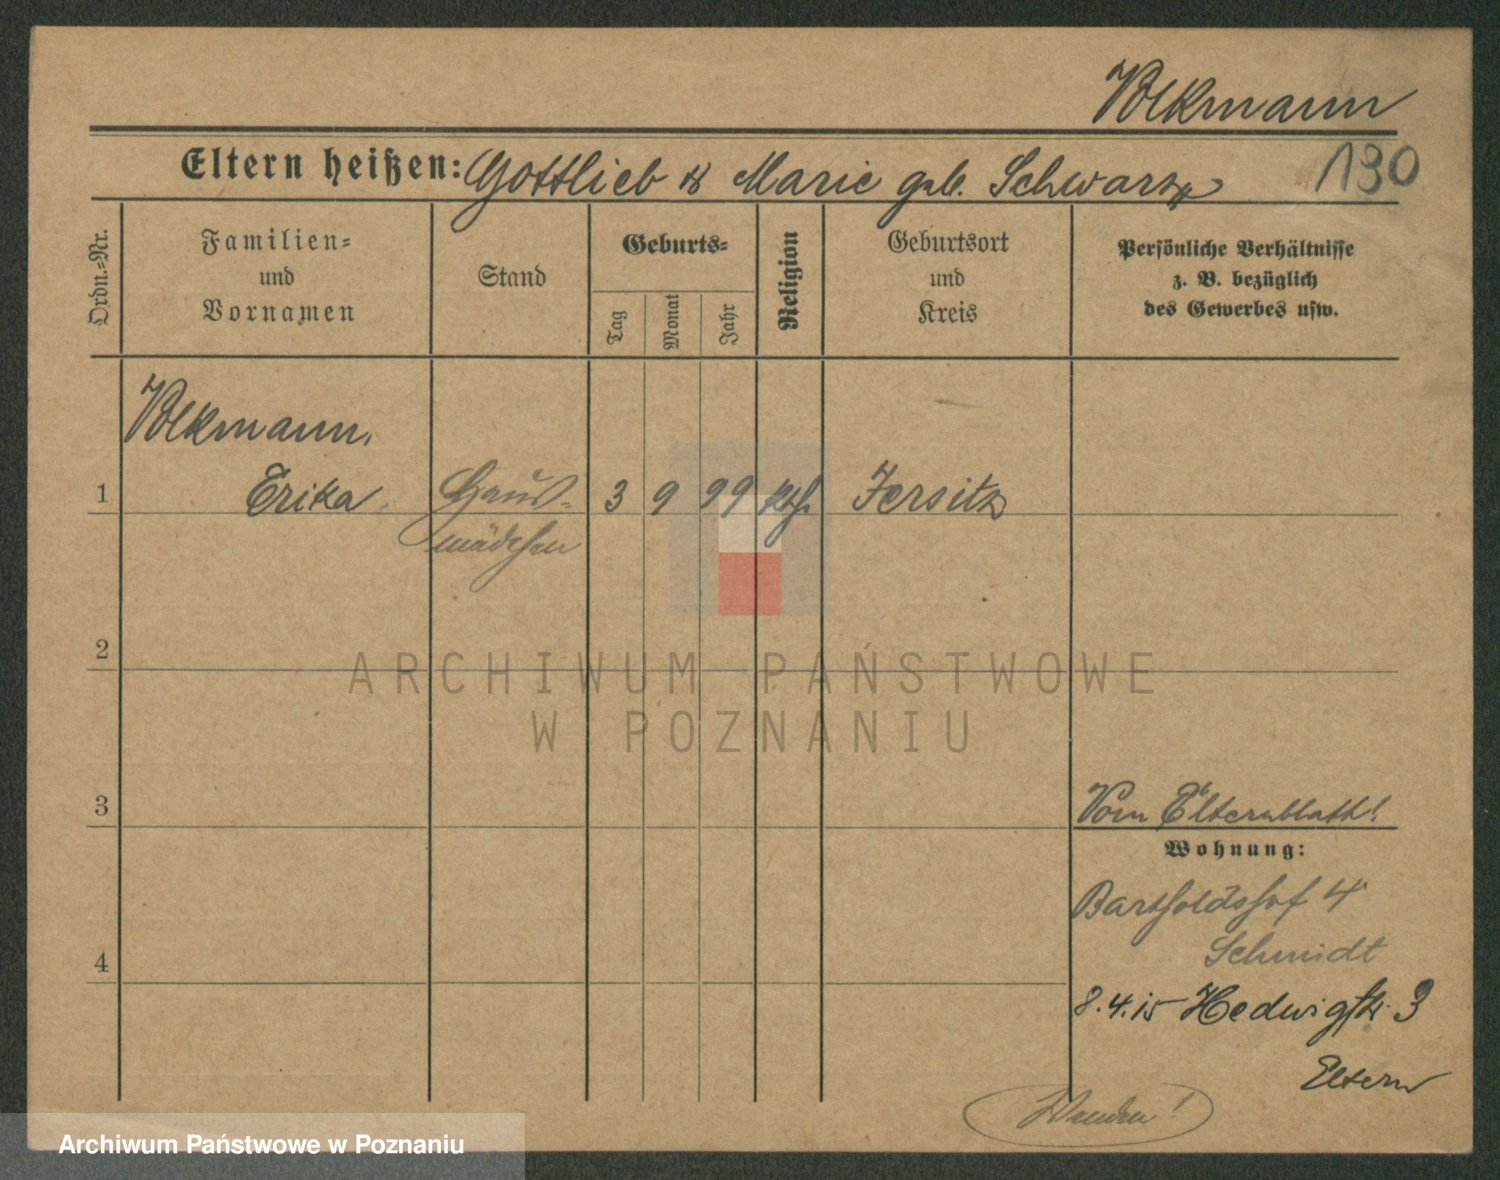 Volkmann
Eltern heißen: Gottlieb & Marie geb. Schwarz
190
Ordn.=Nr.
Familien=
und
Vornamen
Stand
Geburts=
Tag
Monat
Jahr
Religion
Geburtsort
und
Kreis
Persönliche Verhältnisse
z. B. bezüglich
des Gewerbes usw.
Volkmann,
1 Erika. Haus= 3 9 99 kth. Jersitz
mädchen
2
ARCHIWUM PAŃSTWOWE
W POZNANIU
3
Vom Elternblatt!
Wohnung:
Bartholdshof 4
Schmidt
4
8.4.15 Hedwigstr. 3
Eltern
Wenden!
Archiwum Państwowe w Poznaniu